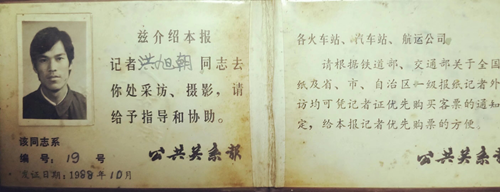 兹介绍本报
记者洪旭朝同志去
你处采访、摄影，请
给予指导和协助。
该同志系
编号：19号
发证日期：1988年10月
公共关系报
各火车站、汽车站、航运公司
请根据铁道部、交通部关于全国
纸及省、市、自治区一级报纸记者外
访均可凭记者证优先购买客票的通知
定，给本报记者优先购票的方便。
公共关系报